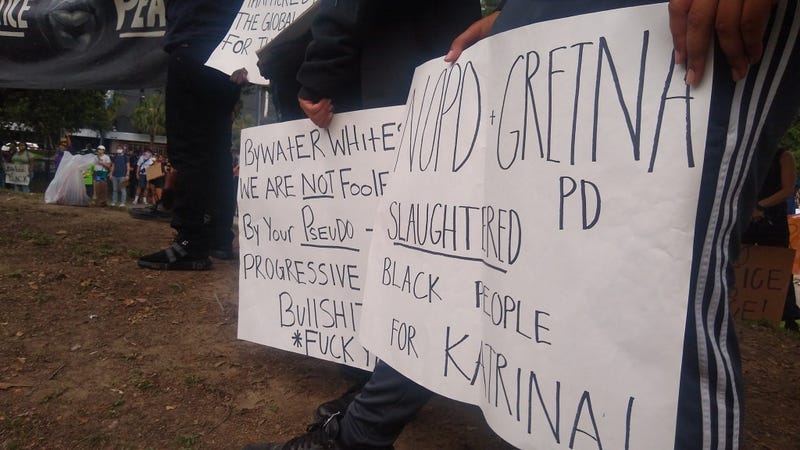 PEA
THE GLOBAL
FOR
BYWATER WHITES
WE ARE NOT FOOL
BY YOUR PSEUDO -
PROGRESSIVE
BULLSHIT
*FUCK
NOPD + GRETNA
PD
SLAUGHTERED
BLACK PEOPLE
FOR KATRINA!